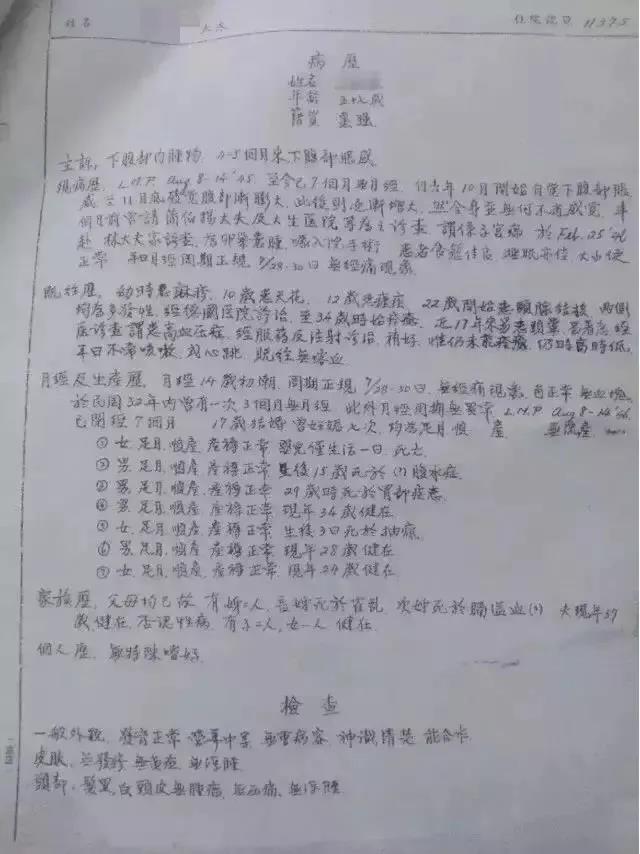 姓名 太太 住院號頭 11375
病歷
姓名
年齡 五十七歲
籍貫
主訴, 下腹部內腫物, 4-5個月來下腹部脹感
現病歷, L.M.P. Aug 8-14'45, 至今已7個月無月經, 但去年10月開始自覺下腹部脹
感 至11月底發覺腹部漸膨大, 此後則逐漸增大, 然全身並無何不適感覺, 半
個月前常請 大夫及人生医院等為之診查, 謂係子宮瘤 於Feb. 25'46
赴 林大夫家診查, 為卵巢囊腫, 囑入院手術 患者食慾佳良, 睡眠亦佳 大小便
正常 月經周期正規 7/28-30日 無經痛現象.
既往歷, 幼時患麻疹, 10歲患天花, 12歲患瘧疾, 22歲開始患頸腺結核, 兩側
均為多發性, 經德國医院診治, 至34歲時始痊癒. 近17年來常患頭暈,
医診查謂患高血压症, 經服药及注射診治, 稍好, 惟仍未痊癒, 仍時高時低,
年日不常咳嗽, 及心跳, 既往無喀血
月經及生產歷, 月經14歲初潮, 周期正規 7/28-30日, 無經痛現象, 色正常無血塊,
於民國32年內曾有一次3個月無月經 此外月經周期無異常 L.M.P. Aug 8-14'45,
已閉經7個月 17歲結婚 曾妊娠七次, 均為足月順產
① 女, 足月, 順產, 產褥正常 嬰兒僅生活一日, 死亡
② 男, 足月, 順產, 產褥正常 生後15歲死於(?)腹水症.
③ 男, 足月, 順產, 產褥正常 29歲時死於胃部疾患.
④ 男, 足月, 順產, 產褥正常 現年34歲健在.
⑤ 女, 足月, 順產, 產褥正常, 生後3日死於抽瘋.
⑥ 男, 足月, 順產, 產褥正常 現年28歲健在
⑦ 女, 足月, 順產, 產褥正常, 現年24歲健在.
家族歷, 父母均已故 有姊二人, 長姊死於霍亂 次姊死於腦溢血(?) 夫現年59
歲健在, 否認性病, 有子二人, 女一人 健在.
個人歷, 無特殊嗜好.
檢查
一般外觀, 發育正常 營養中等, 無重病容, 神識清楚 能合作
皮膚, 無發疹 無黃疸 無浮腫.
頭部, 髮黑, 白 頭皮無腫瘍, 無压痛, 無浮腫.